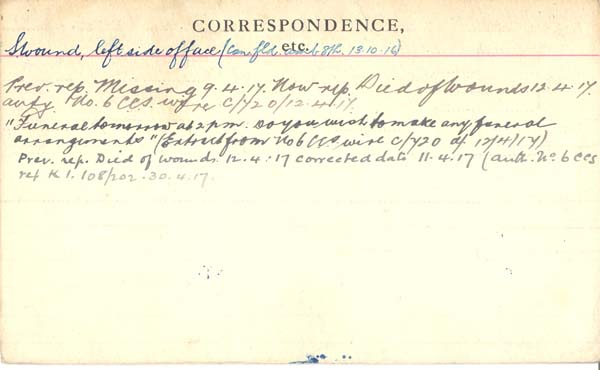 CORRESPONDENCE,
etc.
S wound, left side of face (Can. fld. amb 8th. 13.10.16)
Prev. rep. Missing 9.4.17. Now rep. Died of Wounds 12.4.17.
auty. No. 6 CCS. wire C/720/12.4.17.
"Funeral tomorrow at 2 p.m. Do you wish to make any funeral
arrangements" (Extract from No 6 CCS wire C/720 of 12/4/17)
Prev. rep. Died of wounds 12.4.17 corrected date 11.4.17 (auth. No 6 CCS
ref K 1. 108/202. 30.4.17.